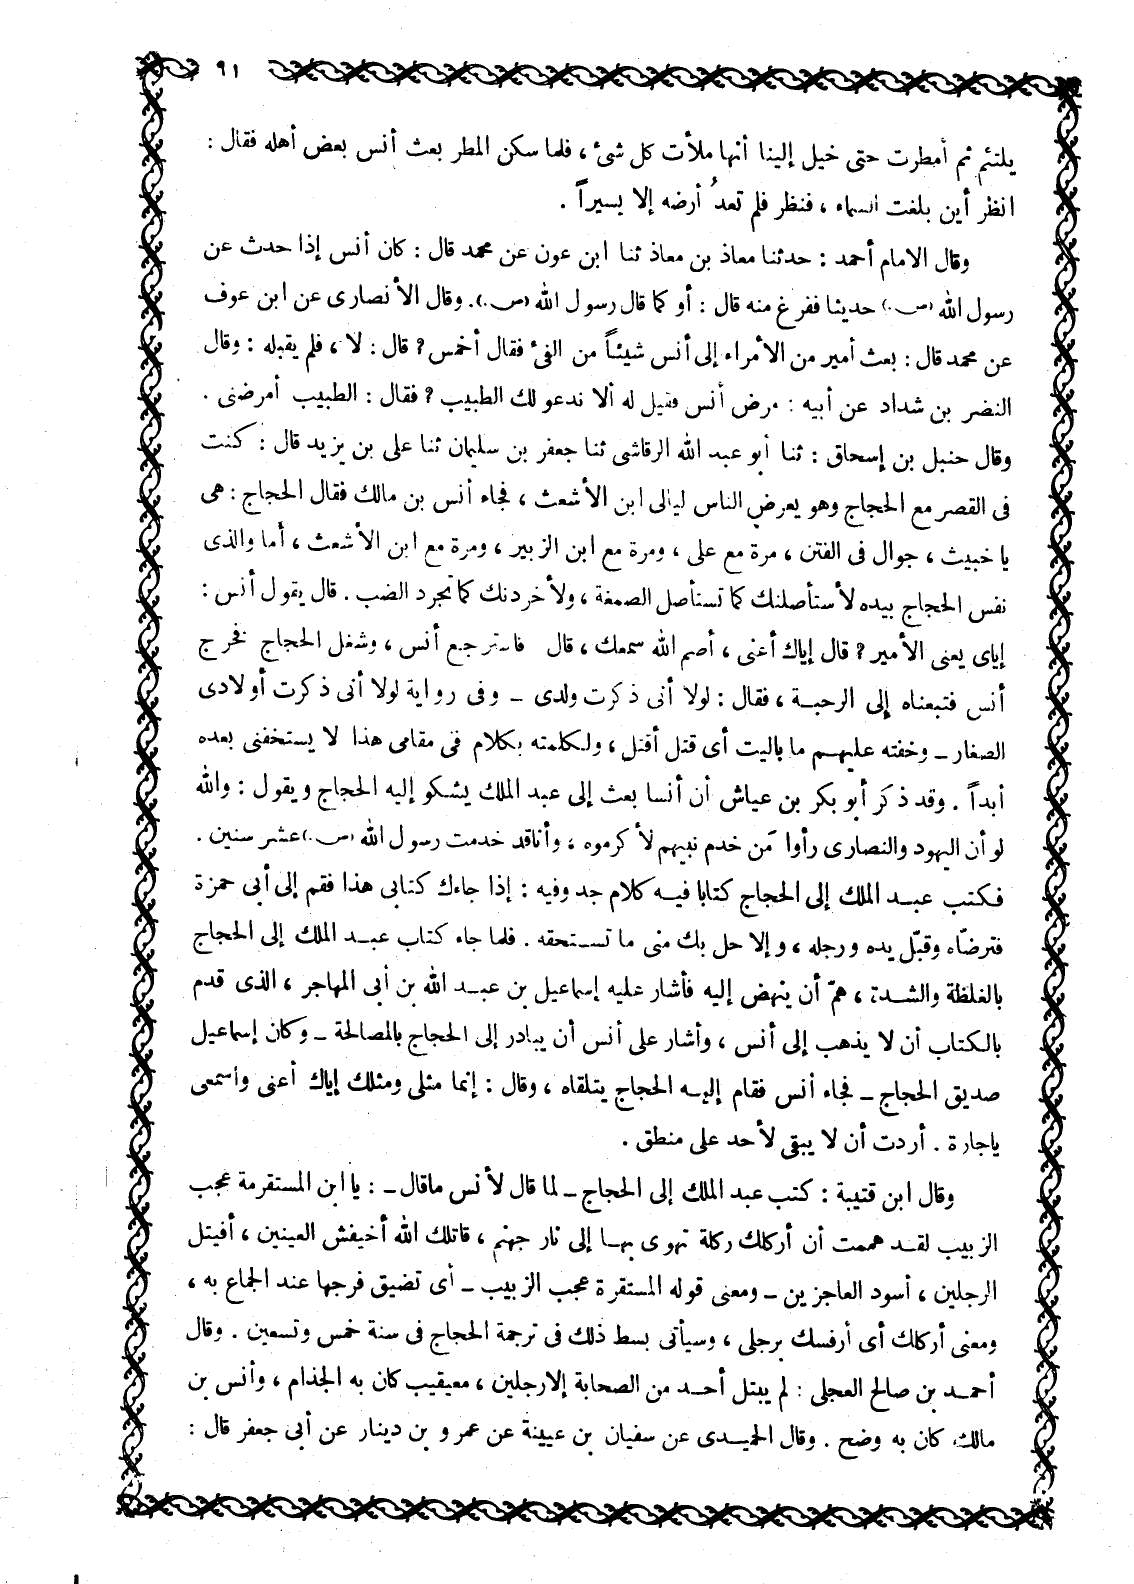 ٩١
يلتئم ثم أمطرت حتى خيل إلينا أنها ملأت كل شئ ، فلما سكن المطر بعث أنس بعض أهله فقال :
انظر أين بلغت السماء ، فنظر فلم تعدُ أرضه إلا يسيراً .
وقال الامام أحمد : حدثنا معاذ بن معاذ ثنا ابن عون عن محمد قال : كان أنس إذا حدث عن
رسول الله (ص.) حديثا ففرغ منه قال : أو كما قال رسول الله (ص.). وقال الأنصارى عن ابن عوف
عن محمد قال : بعث أمير من الأمراء إلى أنس شيئاً من الفئ فقال أخمس ? قال : لا ، فلم يقبله : وقال
النضر بن شداد عن أبيه : مرض أنس فقيل له ألا ندعو لك الطبيب ? فقال : الطبيب أمرضنى .
وقال حنبل بن إسحاق : ثنا أبو عبد الله الرقاشى ثنا جعفر بن سليمان ثنا على بن يزيد قال : كنت
فى القصر مع الحجاج وهو يعرض الناس ليالى ابن الأشعث ، فجاء أنس بن مالك فقال الحجاج : هى
يا خبيث ، جوال فى الفتن ، مرة مع على ، ومرة مع ابن الزبير ، ومرة مع ابن الأشعث ، أما والذى
نفس الحجاج بيده لأستأصلنك كما تستأصل الصمغة ، ولأخردنك كما تجرد الضب . قال يقول أنس :
إياى يعنى الأمير ? قال إياك أعنى ، أصم الله سمعك ، قال فاسترجع أنس ، وشغل الحجاج فخرج
أنس فتبعناه إلى الرحبة ، فقال : لولا أنى ذكرت ولدى ــ وفى رواية لولا أنى ذكرت أولادى
الصغار ــ وخفته عليهم ما باليت أى قتل أقتل ، ولكلمته بكلام فى مقامى هذا لا يستخفنى بعده
أبداً . وقد ذكر أبو بكر بن عياش أن أنسا بعث إلى عبد الملك يشكو إليه الحجاج ويقول : والله
لو أن اليهود والنصارى رأوا مَن خدم نبيهم لأكرموه ، وأنا قد خدمت رسول الله (ص.) عشر سنين .
فكتب عبد الملك إلى الحجاج كتابا فيه كلام جد وفيه : إذا جاءك كتابى هذا فقم إلى أبى حمزة
فترضّاه وقبّل يده ورجله ، وإلا حل بك منى ما تستحقه . فلما جاء كتاب عبد الملك إلى الحجاج
بالغلظة والشدة ، همّ أن ينهض إليه فأشار عليه إسماعيل بن عبد الله بن أبى المهاجر ، الذى قدم
بالكتاب أن لا يذهب إلى أنس ، وأشار على أنس أن يبادر إلى الحجاج بالمصالحة ــ وكان إسماعيل
صديق الحجاج ــ فجاء أنس فقام إليه الحجاج يتلقاه ، وقال : إنما مثلى ومثلك إياك أعنى واسمعى
ياجارة . أردت أن لا يبقى لأحد على منطق .
وقال ابن قتيبة : كتب عبد الملك إلى الحجاج ــ لما قال لأنس ماقال ــ : يا ابن المستقرمة عجب
الزبيب لقد هممت أن أركلك ركلة تهوى بها إلى نار جهنم ، قاتلك الله أخيفش العينين ، أفيتل
الرجلين ، أسود العاجزين ــ ومعنى قوله المستقرة عجب الزبيب ــ أى تضيق فرجها عند الجماع به ،
ومعنى أركلك أى أرفسك برجلى ، وسيأتى بسط ذلك فى ترجمة الحجاج فى سنة خمس وتسعين . وقال
أحمد بن صالح العجلى : لم يبتل أحد من الصحابة إلا رجلين ، معيقيب كان به الجذام ، وأنس بن
مالك كان به وضح . وقال الحميدى عن سفيان بن عيينة عن عمرو بن دينار عن أبى جعفر قال :